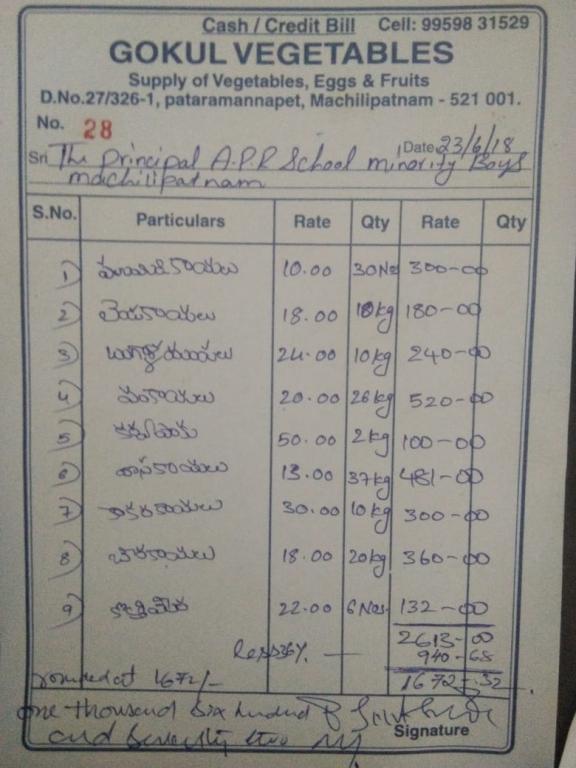 Cash / Credit Bill Cell: 99598 31529
GOKUL VEGETABLES
Supply of Vegetables, Eggs & Fruits
D.No.27/326-1, pataramannapet, Machilipatnam - 521 001.
No. 28
Date 23/6/18
Sri The Principal A.P.R School minority Boys
machilipatnam
S.No. Particulars Rate Qty Rate Qty
1) 10.00 30No 300-00
2) 18.00 10kg 180-00
3) 24.00 10kg 240-00
4) వంకాయలు 20.00 26kg 520-00
5) 50.00 2kg 100-00
6) 13.00 37kg 481-00
7) కాకరకాయలు 30.00 10kg 300-00
8) 18.00 20kg 360-00
9) 22.00 6Nos. 132-00
2613-00
Less 36% — 940-68
rounded at 1672/- 1672-32
one thousand six hundred
and seventy two
Signature